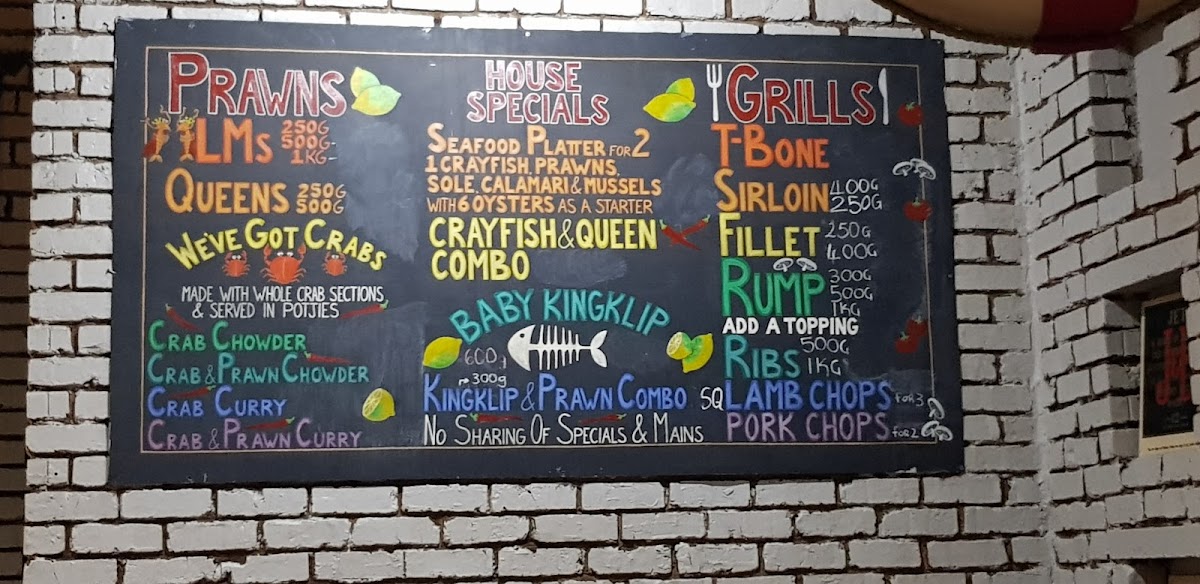 PRAWNS
LMs 250G
500G
1KG
QUEENS 250G
500G
WE'VE GOT CRABS
MADE WITH WHOLE CRAB SECTIONS
& SERVED IN POTJIES
CRAB CHOWDER
CRAB & PRAWN CHOWDER
CRAB CURRY
CRAB & PRAWN CURRY
HOUSE
SPECIALS
SEAFOOD PLATTER FOR 2
1 CRAYFISH, PRAWNS,
SOLE, CALAMARI & MUSSELS
WITH 6 OYSTERS AS A STARTER
CRAYFISH & QUEEN
COMBO
BABY KINGKLIP
600g
300g
KINGKLIP & PRAWN COMBO SQ
NO SHARING OF SPECIALS & MAINS
GRILLS
T-BONE
SIRLOIN 400G
250G
FILLET 250G
400G
RUMP 300G
500G
1KG
ADD A TOPPING
RIBS 500G
1KG
LAMB CHOPS FOR 3
PORK CHOPS FOR 2